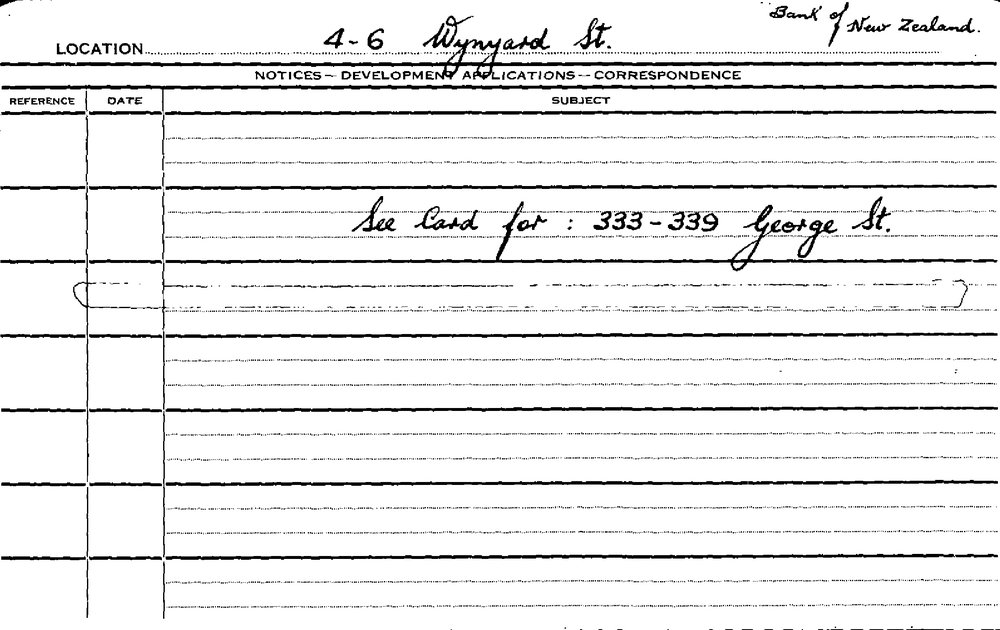 Bank of New Zealand.
LOCATION 4-6 Wynyard St.
NOTICES - DEVELOPMENT APPLICATIONS - CORRESPONDENCE
REFERENCE DATE SUBJECT
See Card for : 333-339 George St.